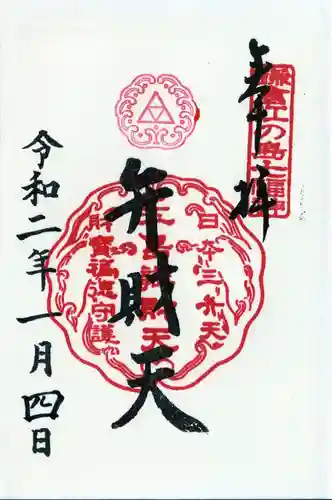 奉拝
日本三弁天
江の島弁財天
弁財天
財寳福徳守護
令和二年一月四日